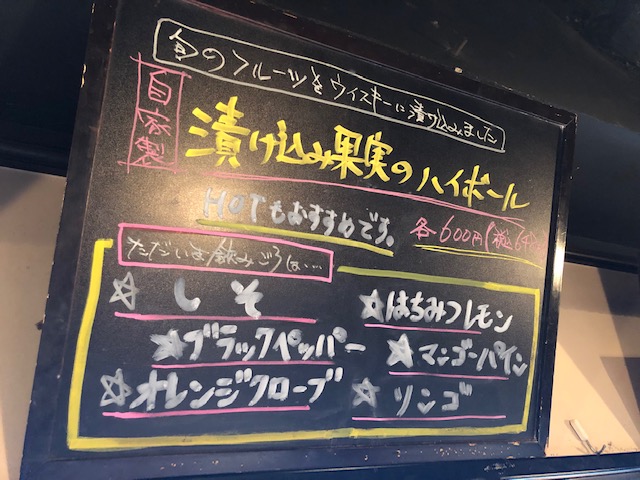 旬のフルーツをウイスキーに漬け込みました
自家製
漬け込み果実のハイボール
HOTもおすすめです。
各600円(税込
ただいま飲みごろは…
☆しそ
★はちみつレモン
★ブラックペッパー
★マンゴーパイン
☆オレンジクローブ
☆リンゴ